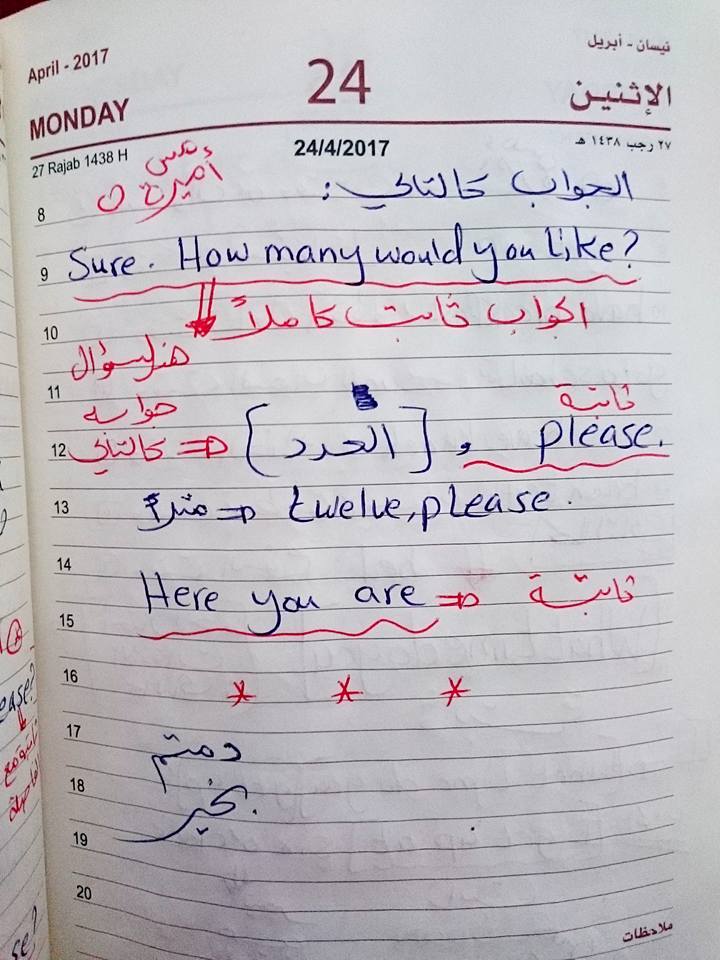 April - 2017
نيسان - أبريل
24
MONDAY
الإثنين
27 Rajab 1438 H
24/4/2017
٢٧ رجب ١٤٣٨ هـ
مس
أميرة
الجواب كالتالي:
8
9 Sure. How many would you like?
10 الجواب ثابت كاملاً
هذا السؤال
11
جوابه
ثابتة
12 كالتالي ⇒ [العدد] , please.
13 مثلاً ⇒ twelve, please.
14
Here you are ⇒ ثابتة
15
16
* * *
17
دمتم
18
بخير.
19
20
ease?
se?
ملاحظات